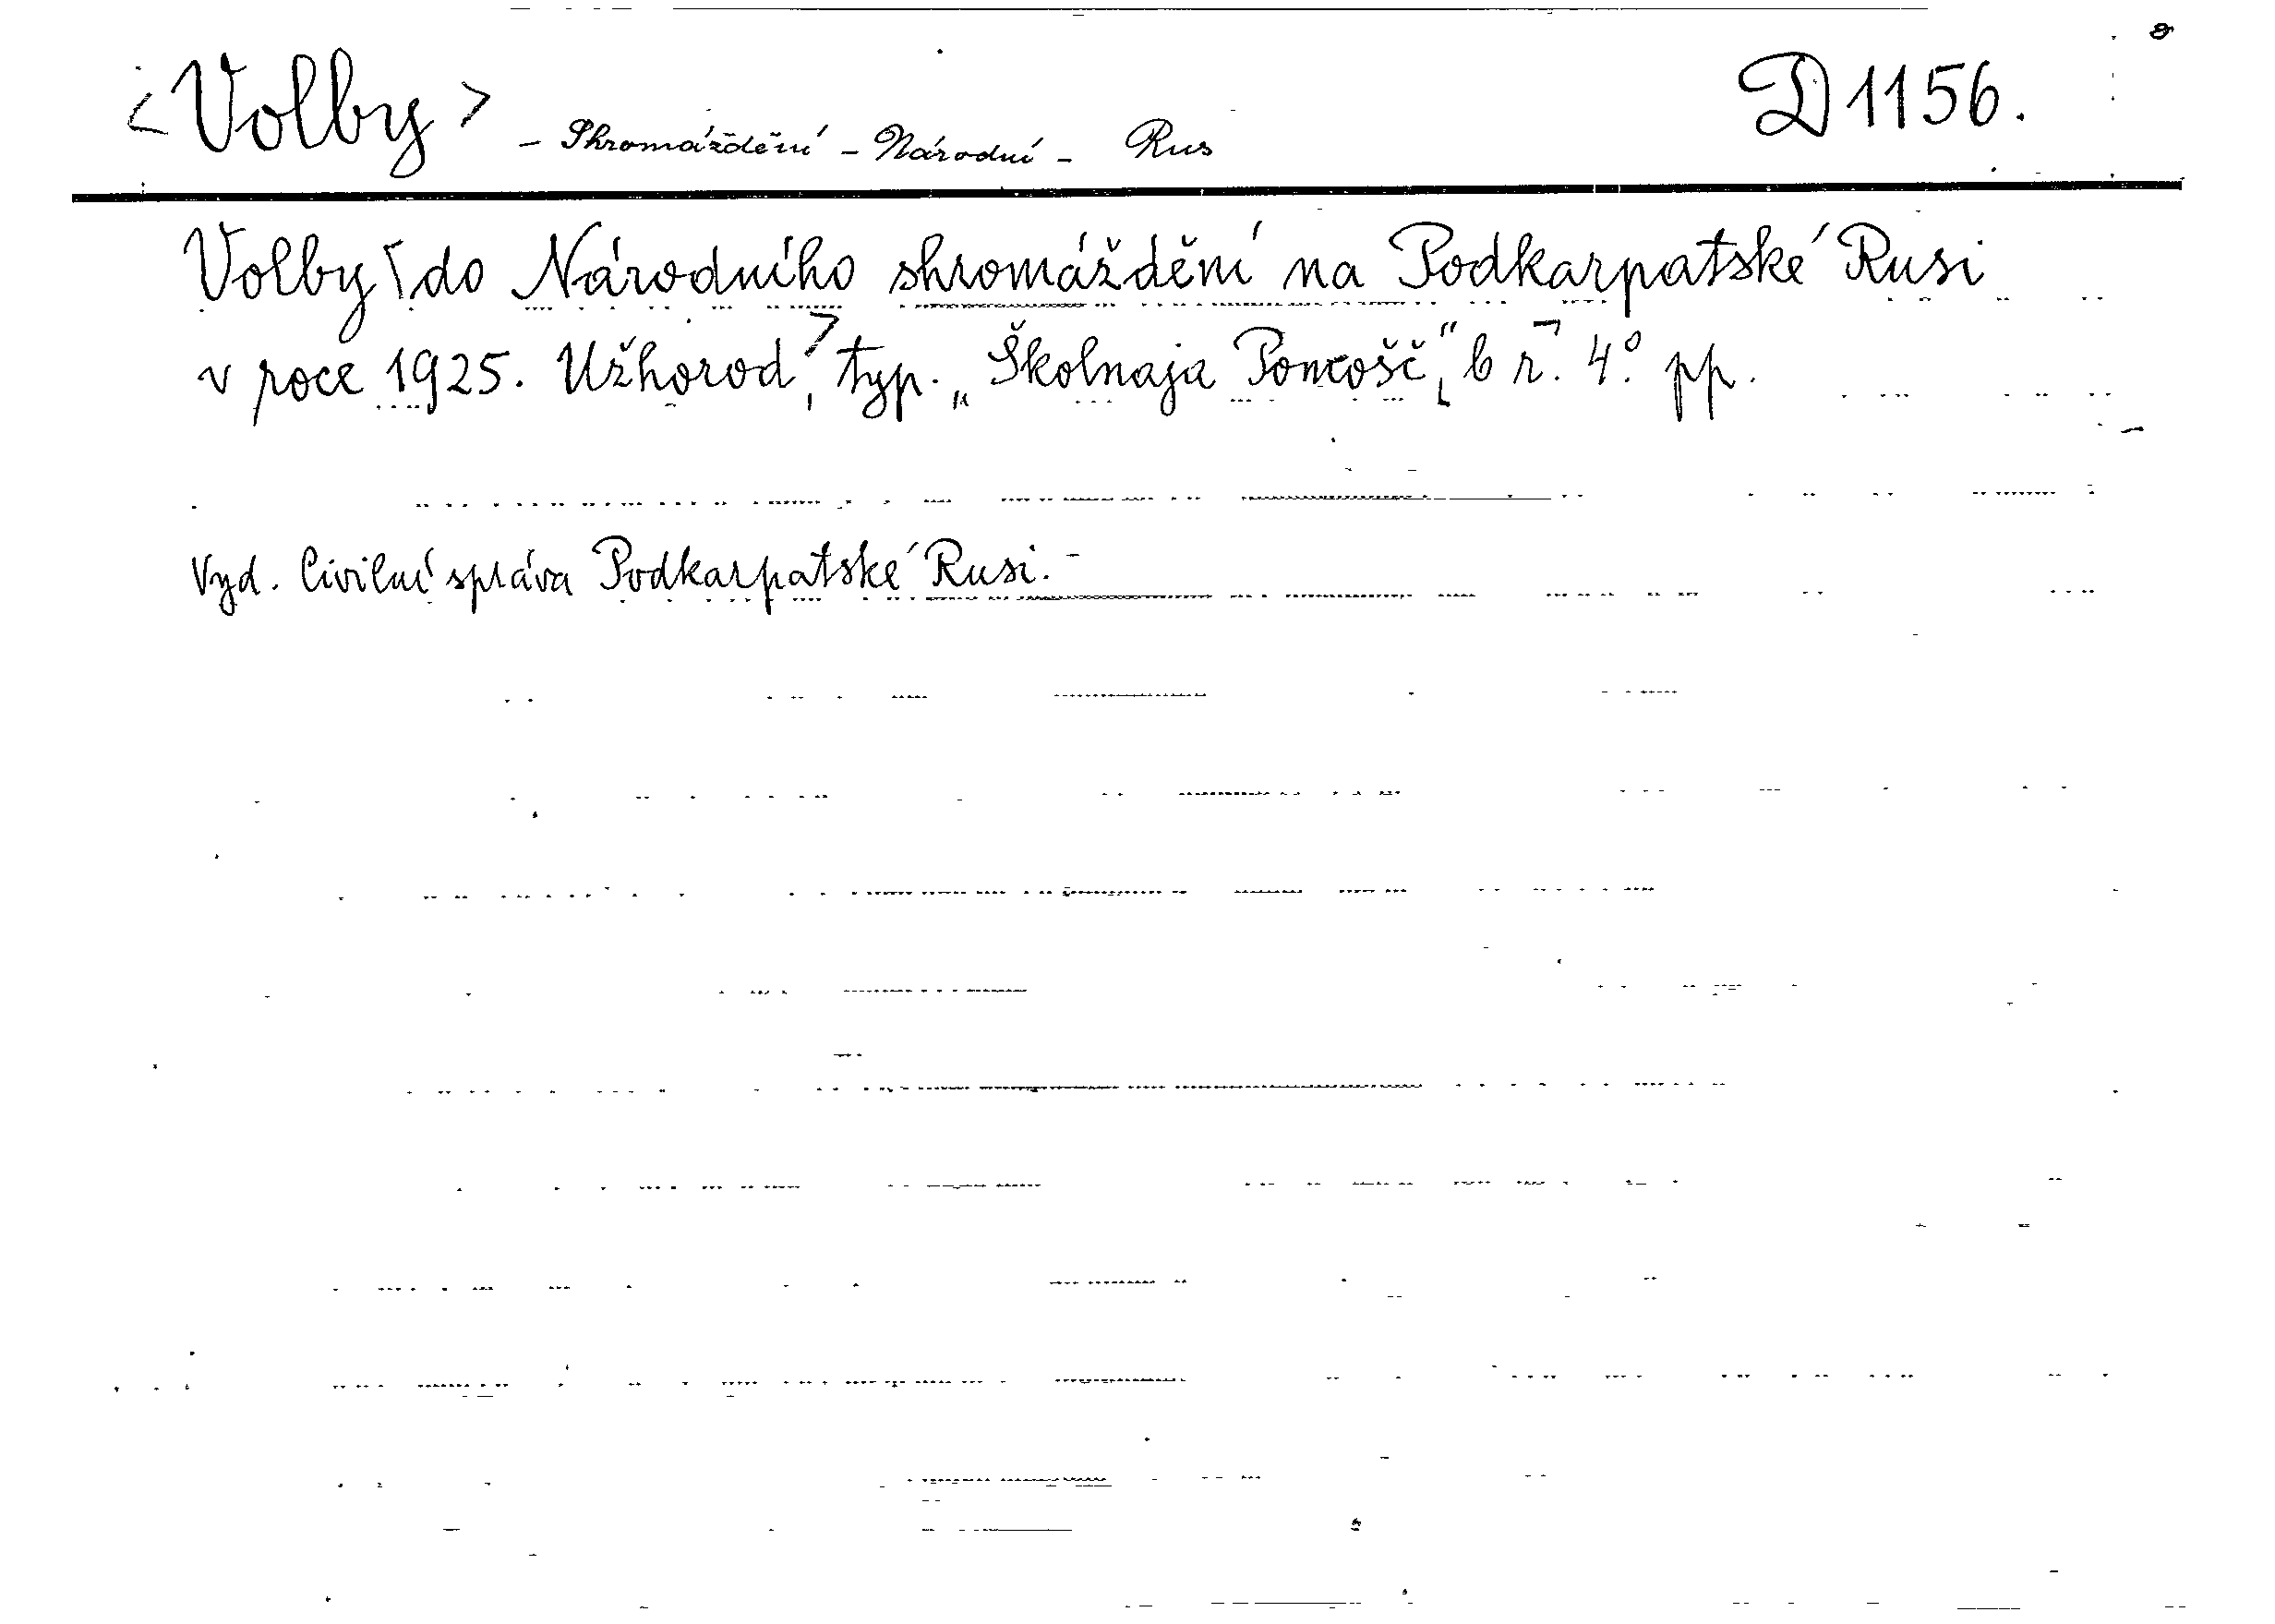 <Volby> - Shromáždění - Národní - Rus D 1156.
Volby do Národního shromáždění na Podkarpatské Rusi
v roce 1925. Užhorod, typ. „Školnaja Pomošč“, b r. 4.° pp.
Vyd. Civilní správa Podkarpatské Rusi.-